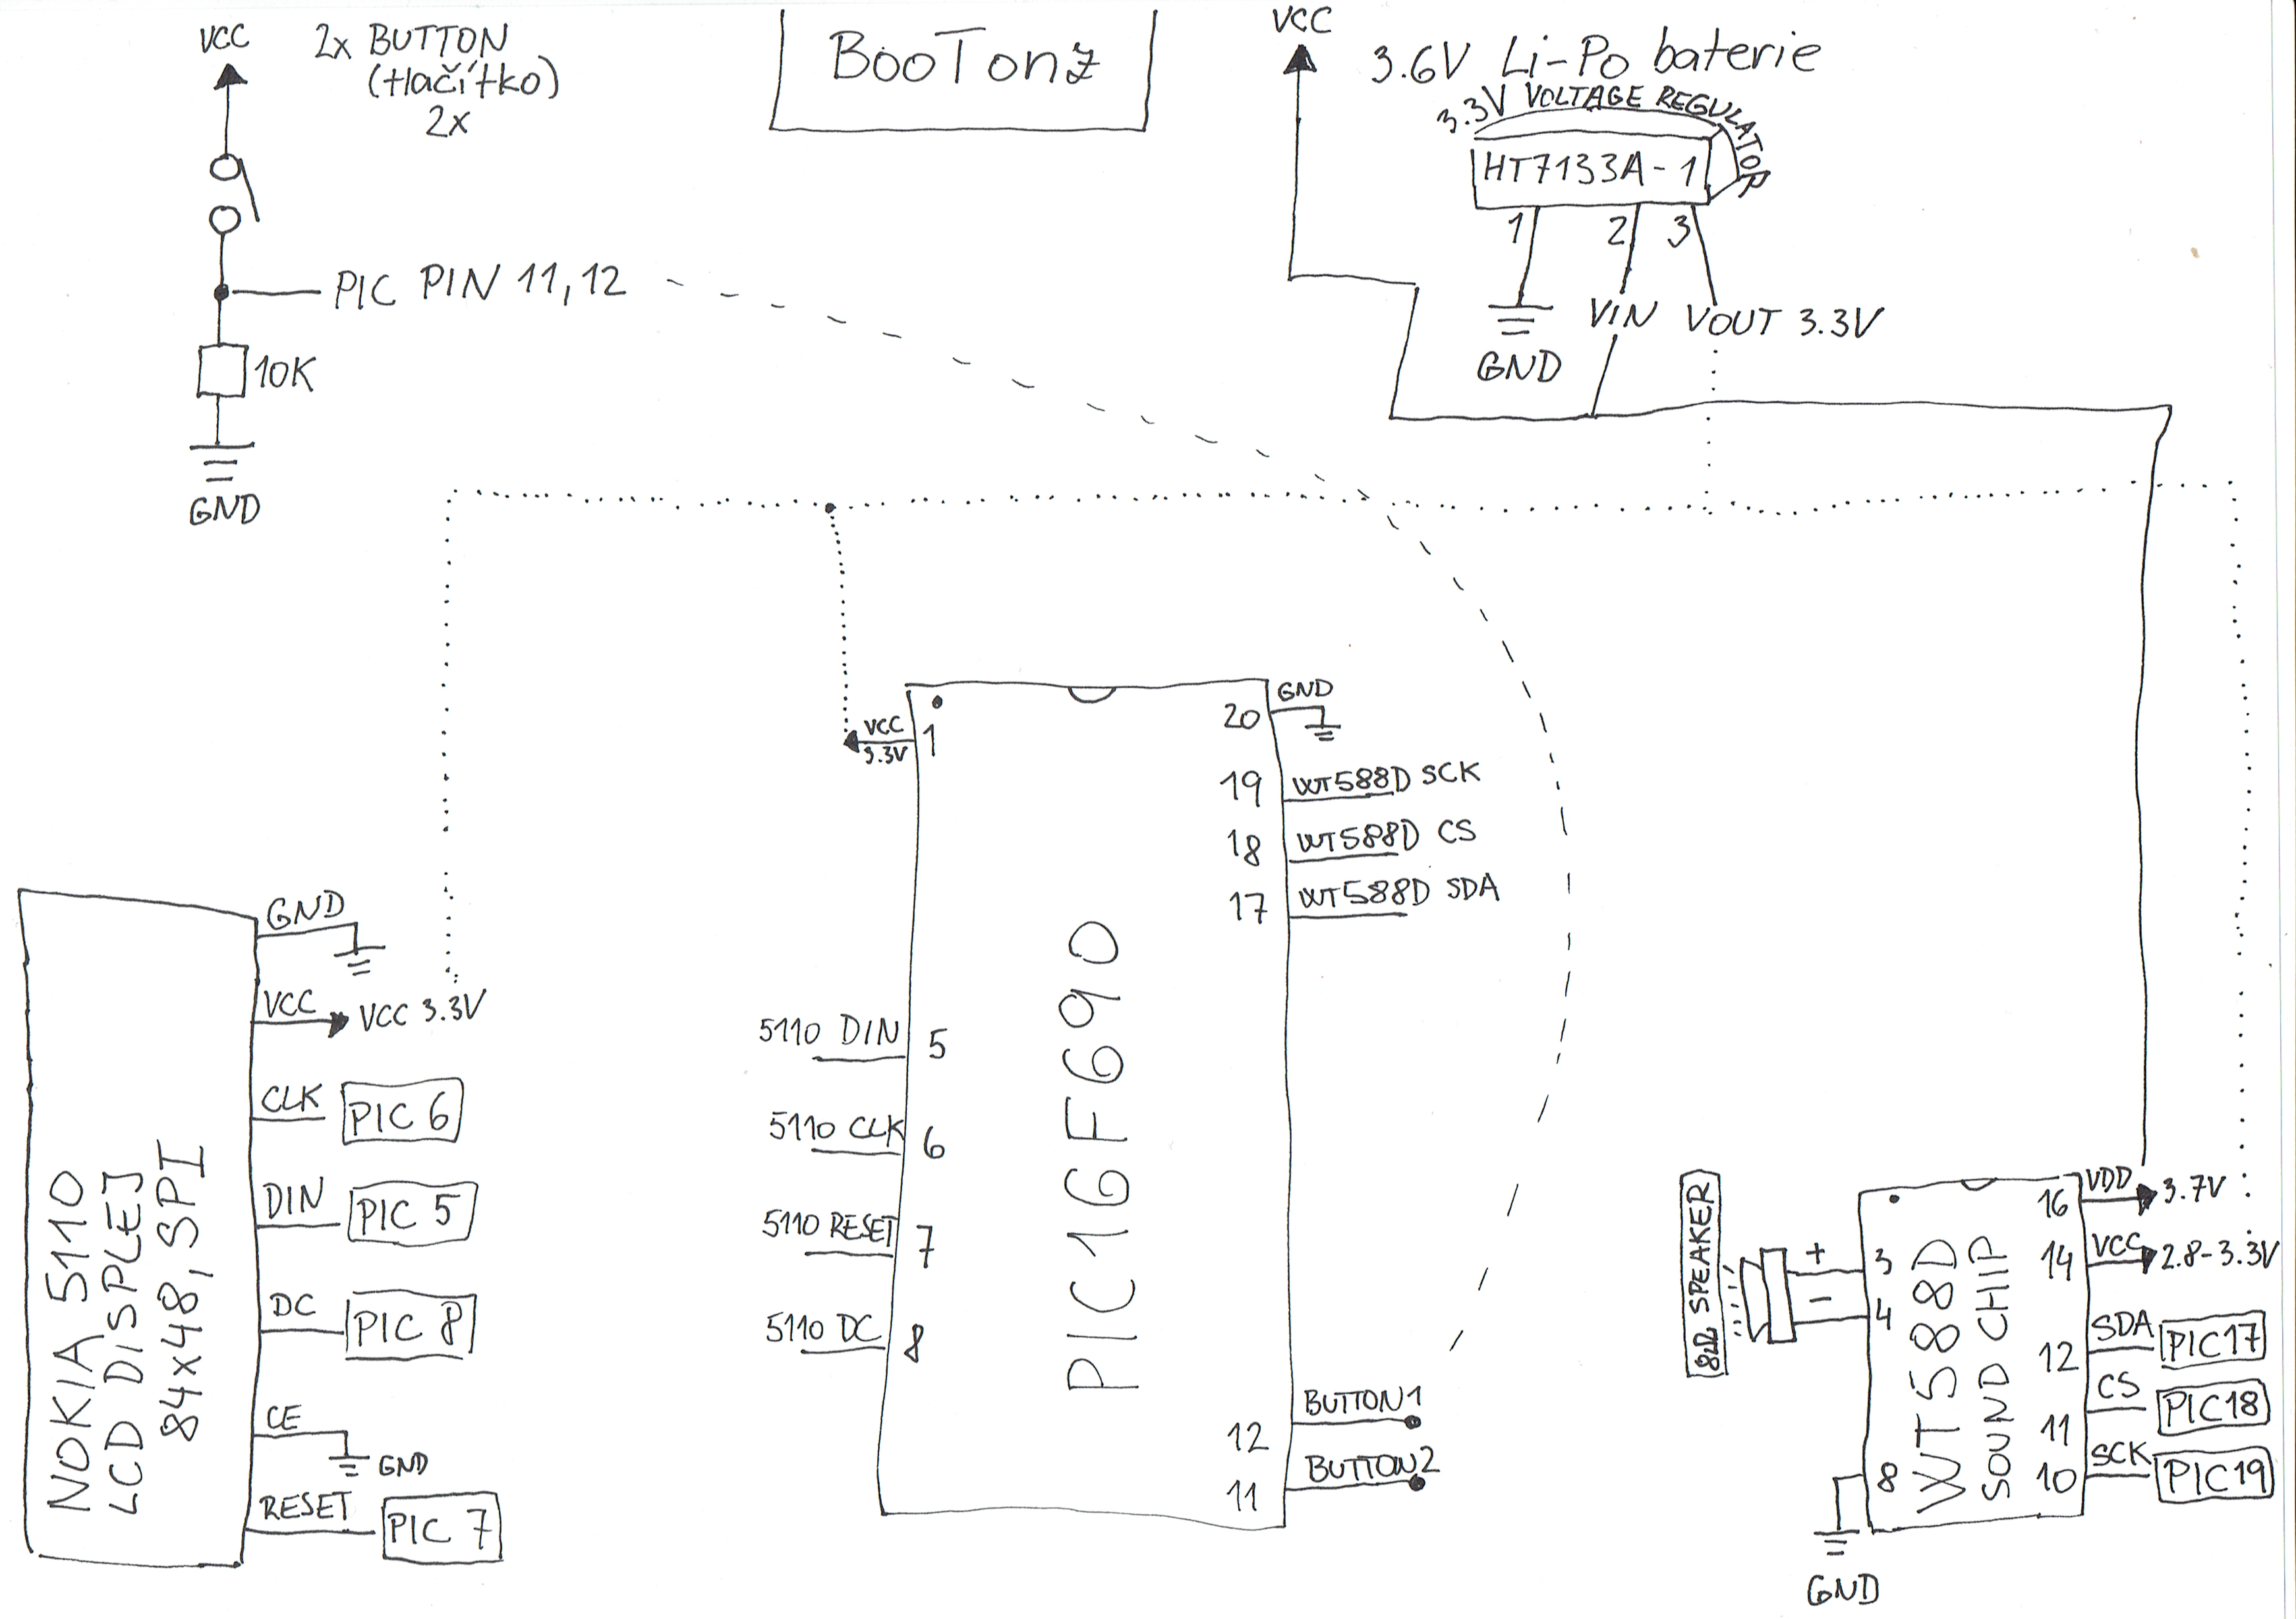 VCC
2x BUTTON
(tlačítko)
2x
PIC PIN 11,12
10K
GND
BooTonz
VCC
3.6V Li-Po baterie
3.3V VOLTAGE REGULATOR
HT7133A-1
1 2 3
VIN VOUT 3.3V
GND
NOKIA 5110
LCD DiSPLEJ
84x48, SPI
GND
VCC VCC 3.3V
CLK PIC 6
DIN PIC 5
DC PIC 8
CE
GND
RESET PIC 7
PIC16F690
VCC
3.3V
1
5110 DIN 5
5110 CLK 6
5110 RESET 7
5110 DC 8
GND
20
19 WT588D SCK
18 WT588D CS
17 WT588D SDA
12 BUTTON1
11 BUTTON2
8Ω SPEAKER
+
−
3
4
8
GND
WT588D
SOUND CHIP
16 VDD 3.7V
14 VCC 2.8-3.3V
12 SDA PIC17
11 CS PIC18
10 SCK PIC19